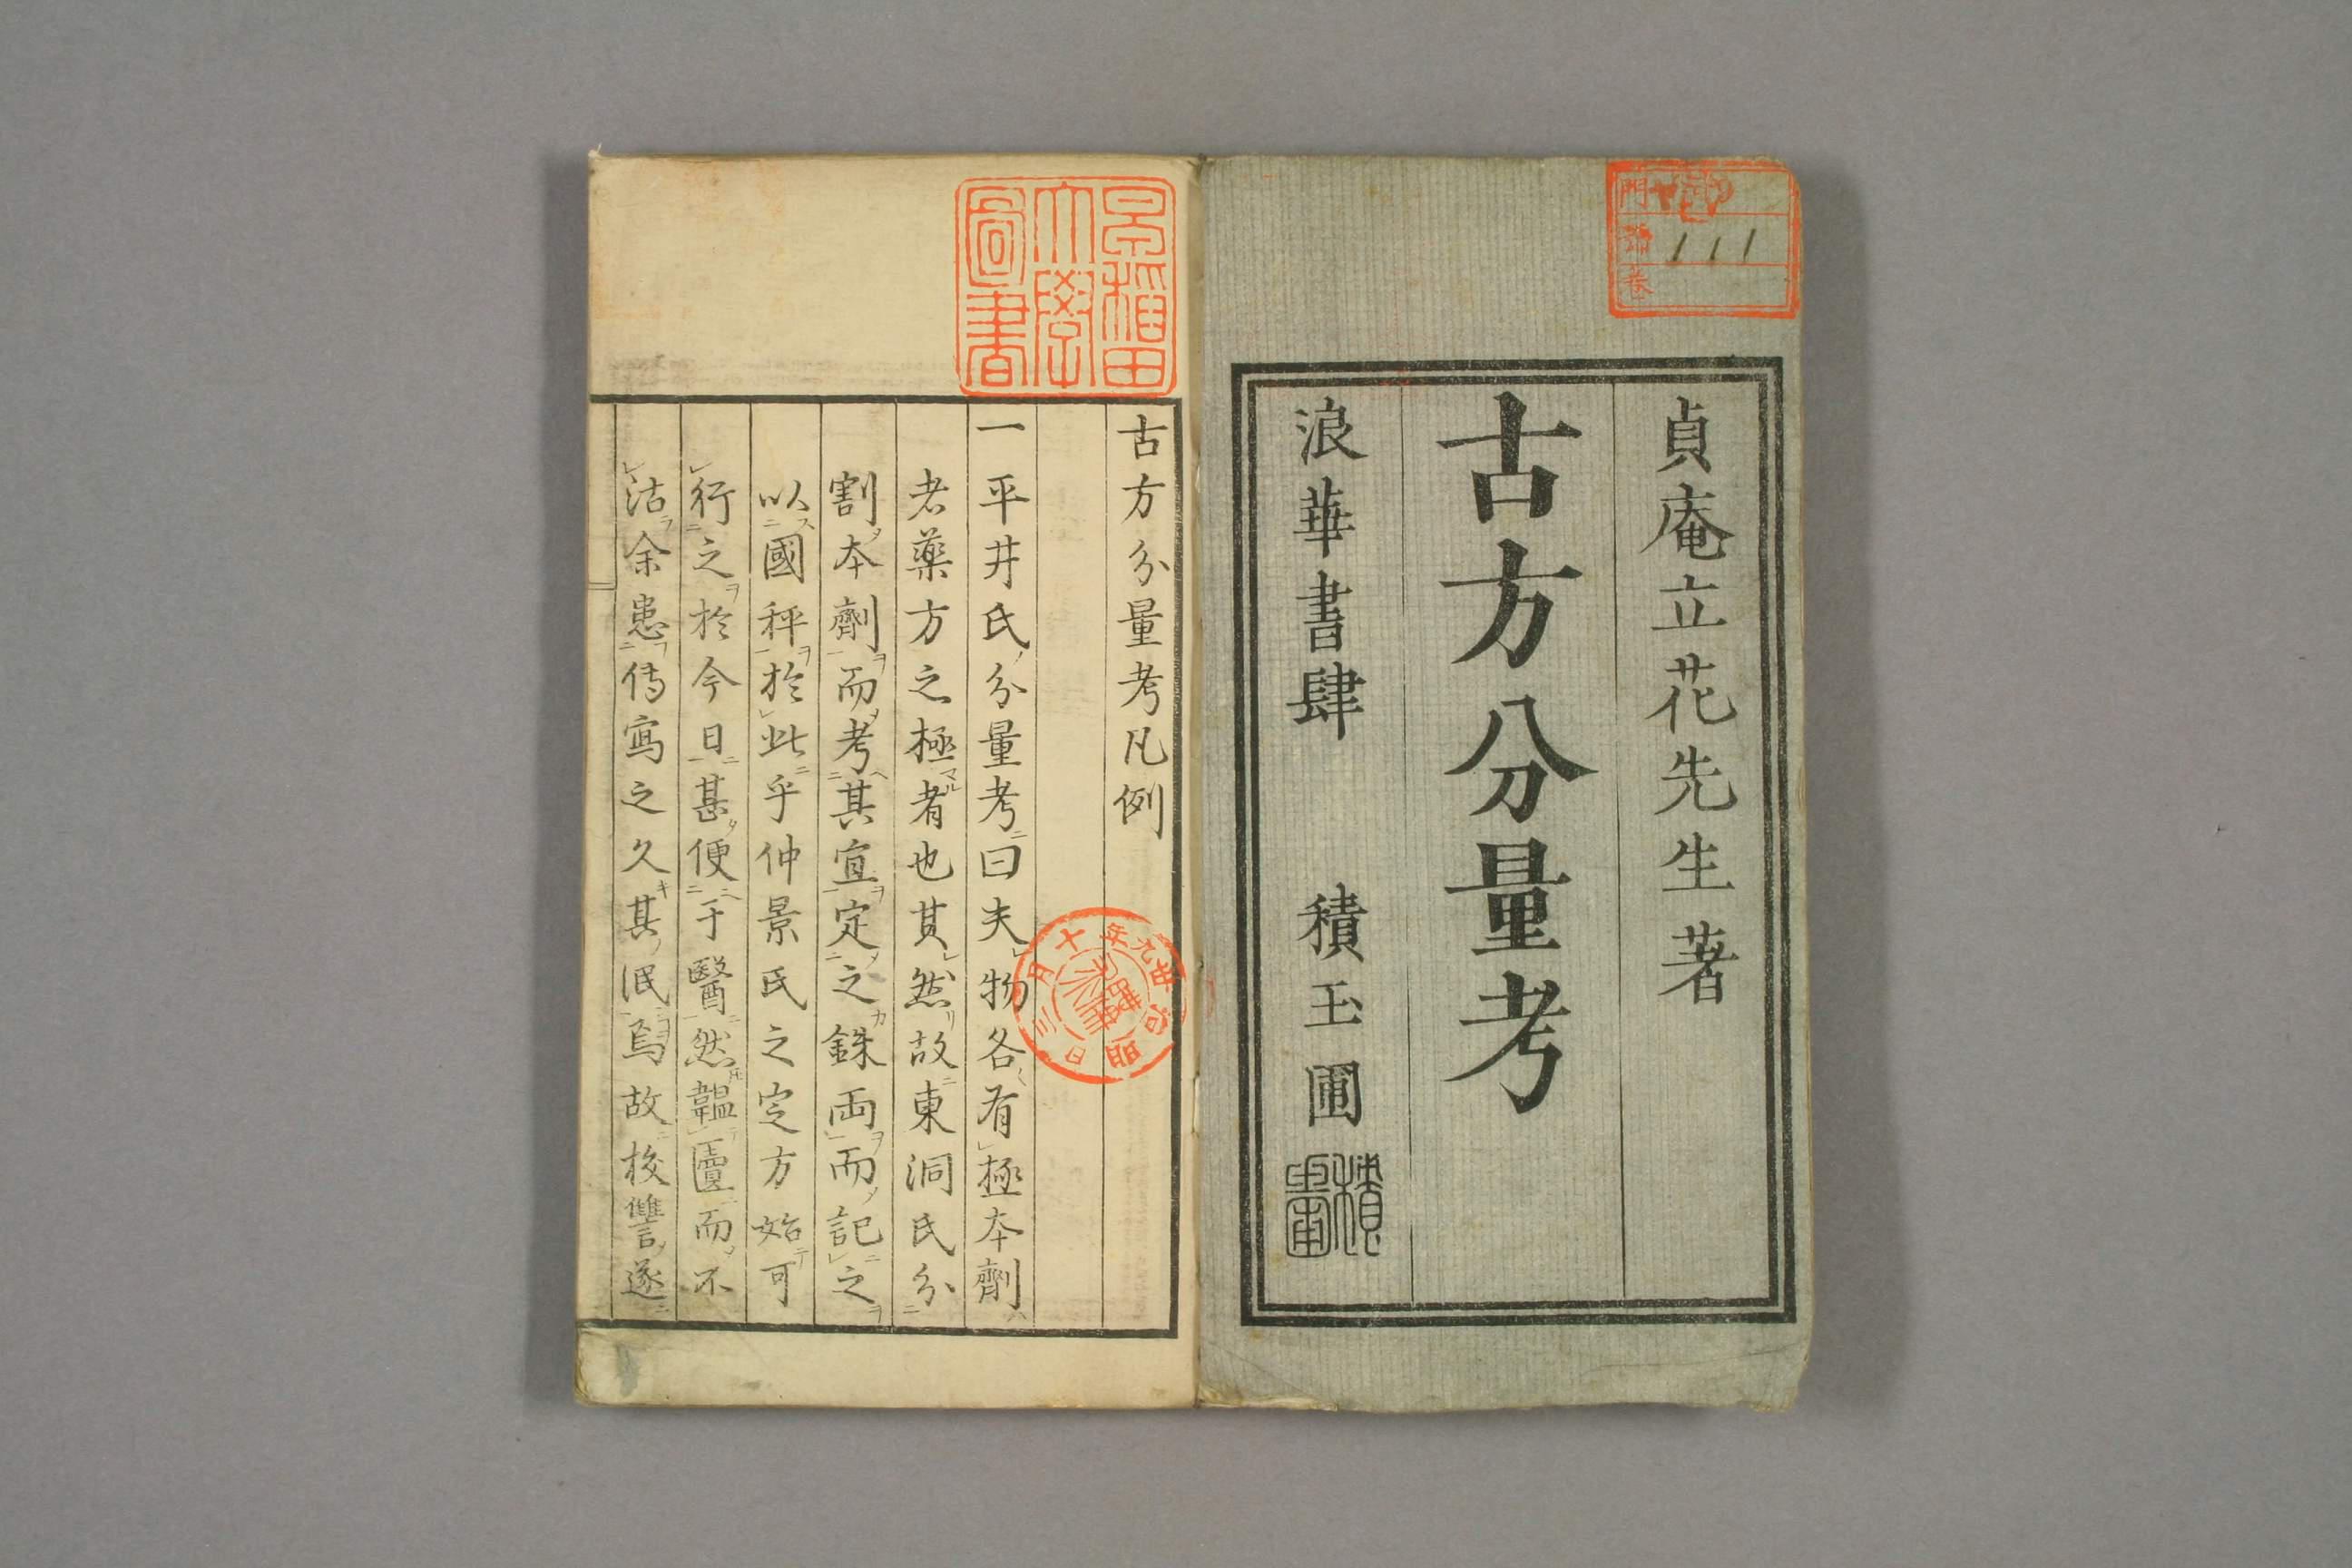 貞庵立花先生著
古方分量考
浪華書肆　積玉圃
門
號 111
卷
早稲田
大學
圖書
明治廿九年十月三日
古方分量考凡例
一平井氏分量考曰夫物各有極本劑
者藥方之極者也其然故東洞氏分
割本劑而考其宜定之銖両而記之
以國秤於此乎仲景氏之定方始可
行之於今日甚便于醫然韞匵而不
沽余患傳寫之久其泯焉故挍讐遂